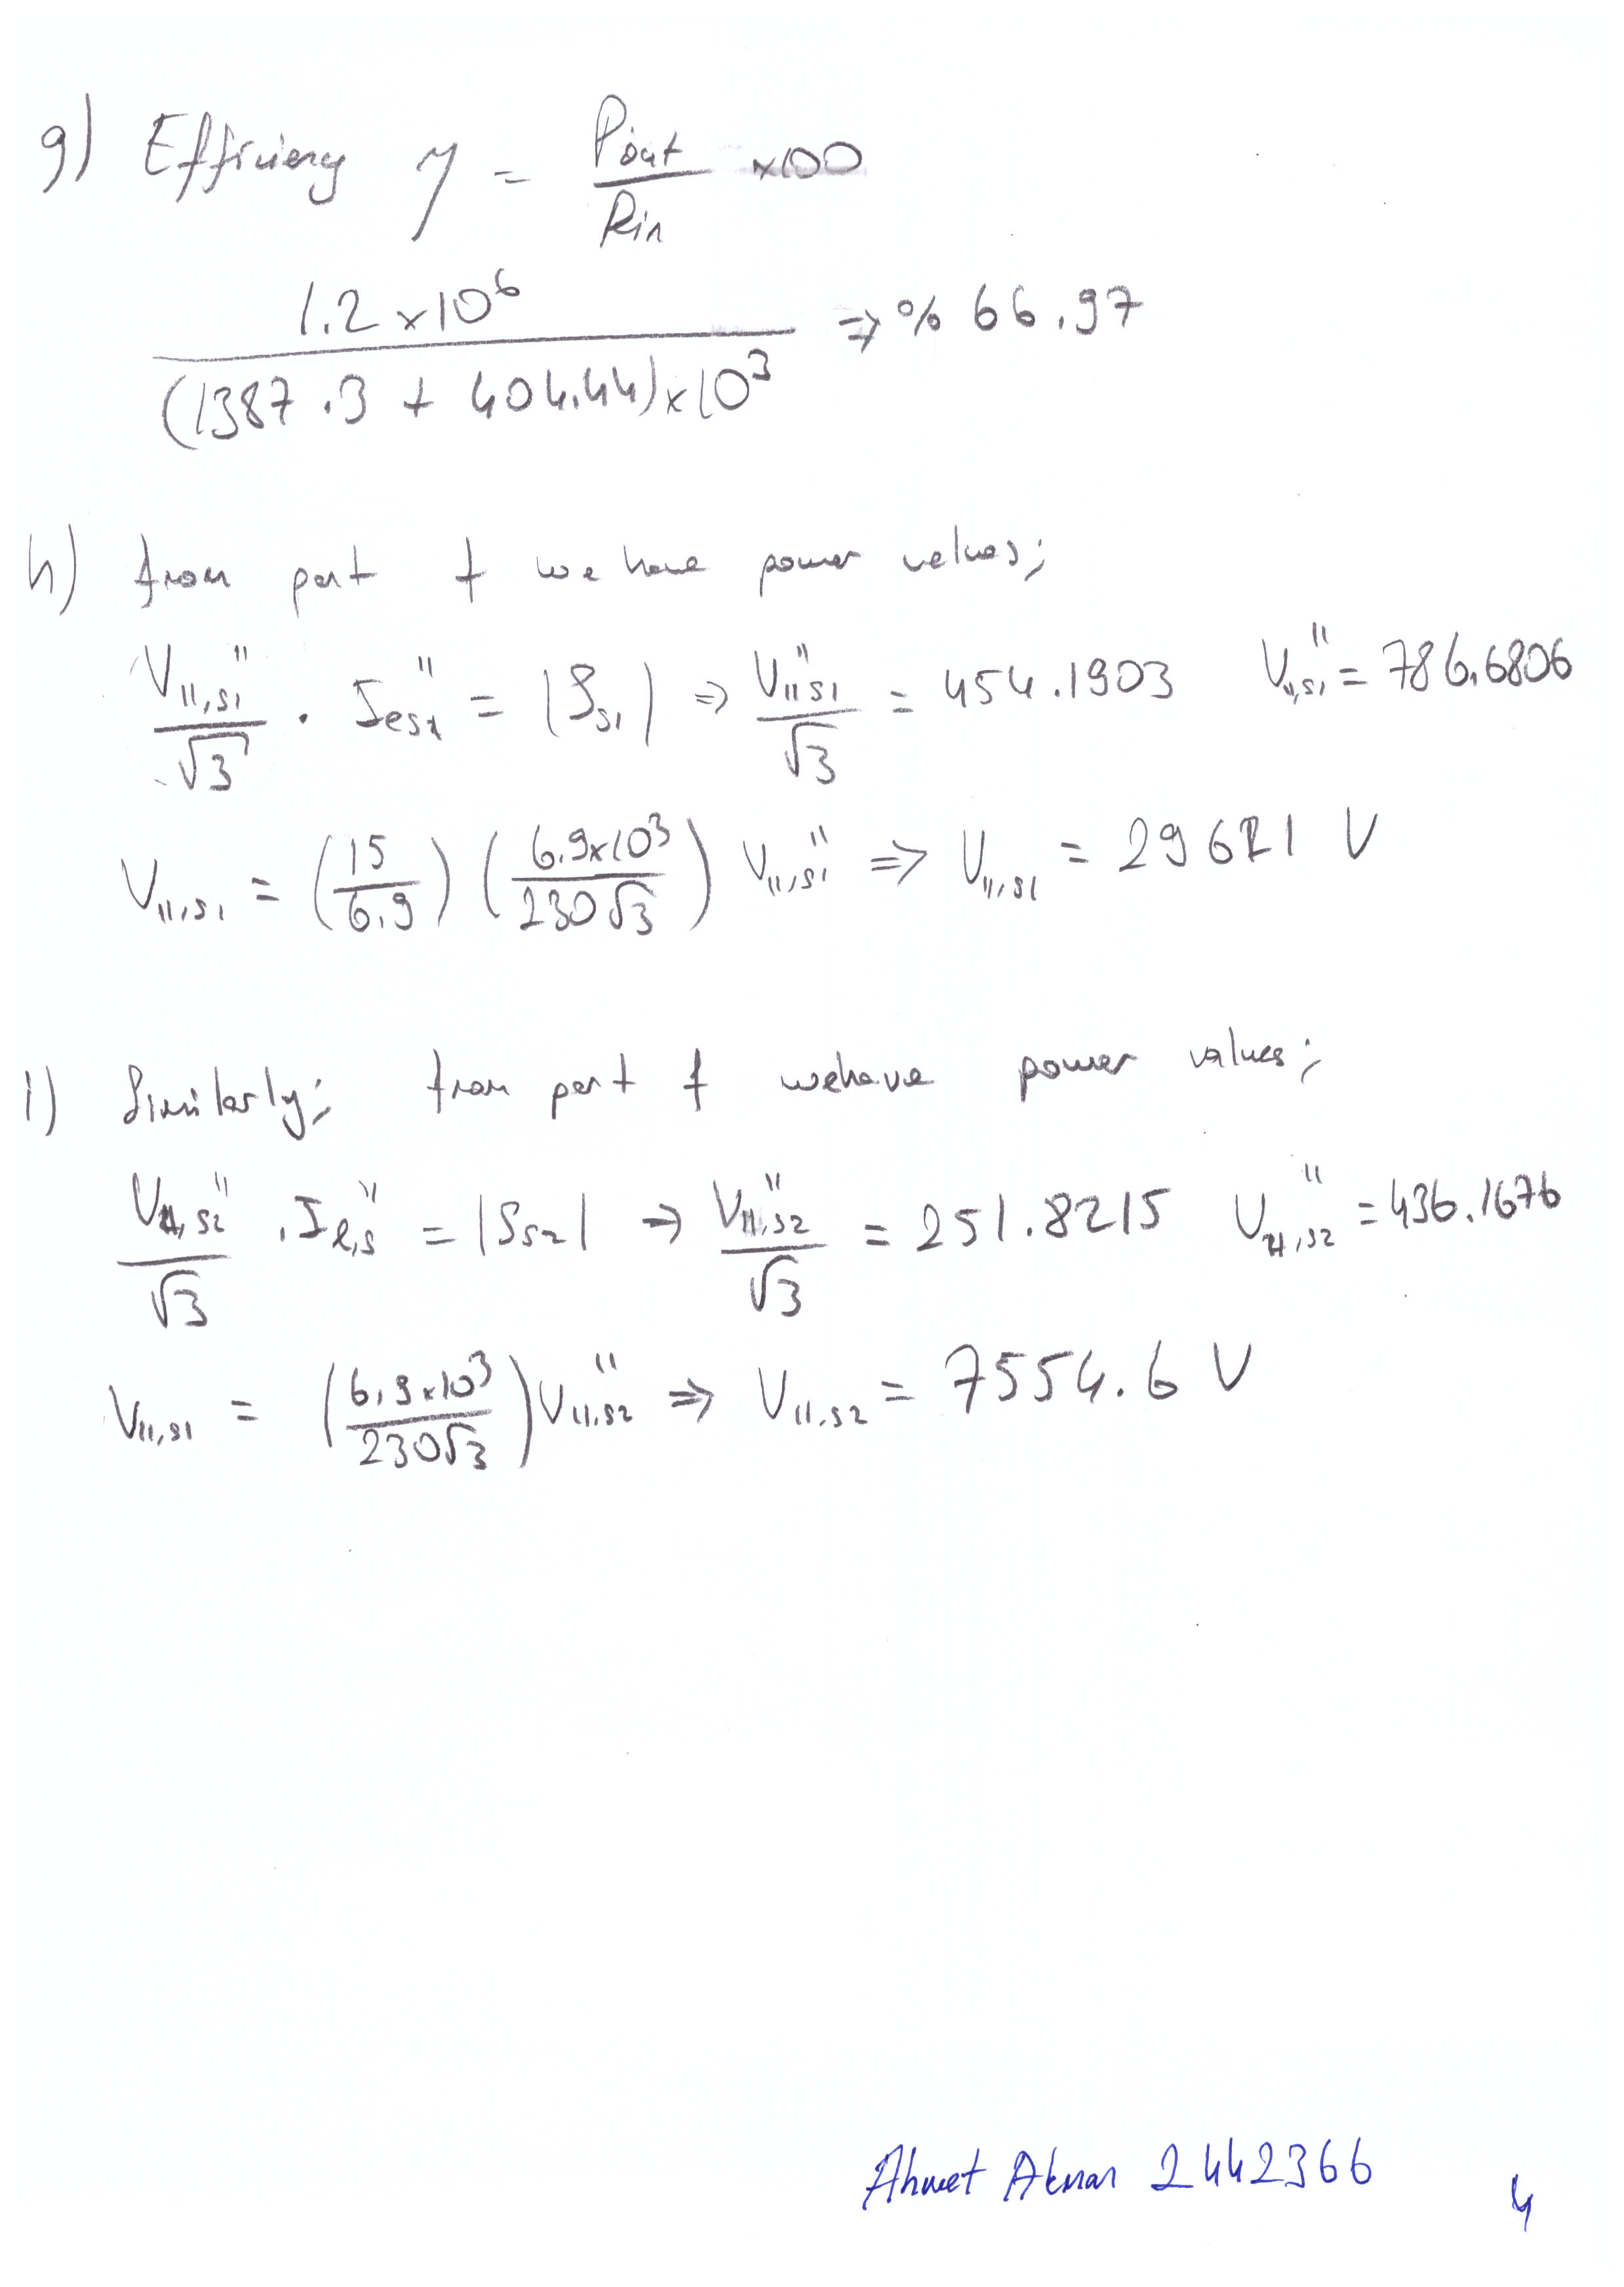 g) Efficiency η = Pout / Pin ×100
1.2 × 10^6 / (1387.3 + 404.44) × 10^3 ⇒ % 66.97
h) from part f we have power values;
V_ll,s1'' / √3 . I_es1'' = |S_s1| ⇒ V_ll,s1'' / √3 = 454.1903 V_ll,s1'' = 786.6806
V_ll,s1 = (15 / 6.9) (6.9×10^3 / 230√3) V_ll,s1'' ⇒ V_ll,s1 = 29621 V
i) Similarly; from part f we have power values;
V_ll,s2'' / √3 . I_l,s'' = |S_s2| → V_ll,s2'' / √3 = 251.8215 V_ll,s2'' = 436.1676
V_ll,s1 = (6.9×10^3 / 230√3) V_ll,s2'' ⇒ V_ll,s2 = 7554.6 V
Ahmet Akman 2442366
4